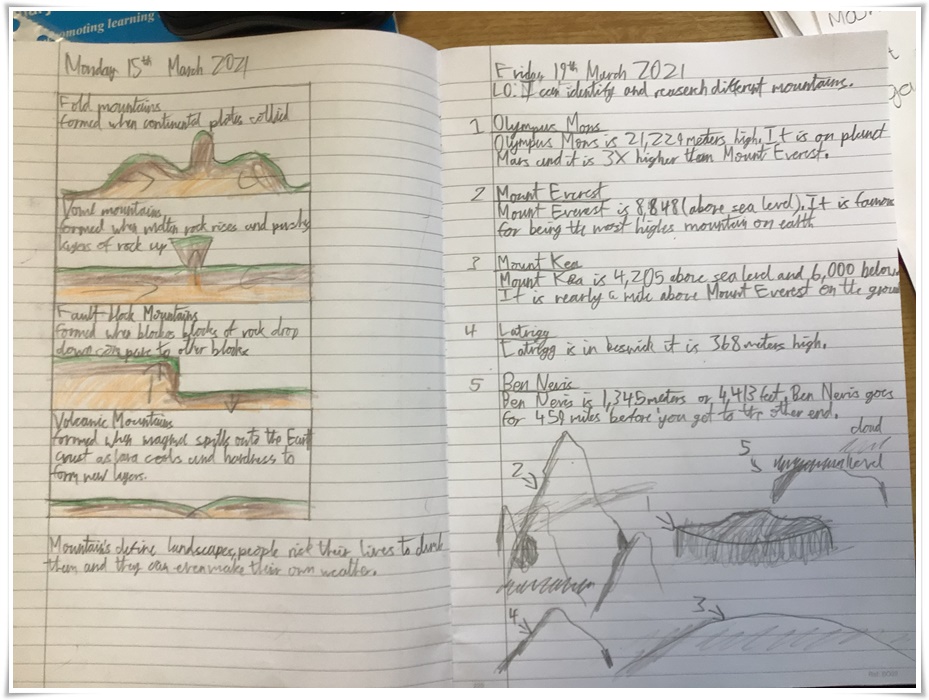 Promoting learning
Monday 15th March 2021
Fold mountains
formed when continental plates collied
mountains
formed when molten rock rises and pushes
layers of rock up
Fault-block Mountains
formed when blockes blocks of rock drop
down compare to other blocks
Volcanic Mountains
formed when magma spills onto the Earth
crust as lava cools and hardness to
form new layers.
Mountain's define landscapes, people risk their lives to climb
them and they can even make their own weather.
Friday 19th March 2021
LO: I can identify and reaserch different mountains.
1 Olympus Mons
Olympus Mons is 21,229 meters high. It is on planet
Mars and it is 3X higher than Mount Everest.
2 Mount Everest
Mount Everest is 8,848 (above sea level). It is famous
for being the most highes mountain on earth
3 Mount Kea
Mount Kea is 4,205 above sea level and 6,000 below.
It is nearly a mile above Mount Everest on the ground
4 Latrigg
Latrigg is in keswick it is 368 meters high.
5 Ben Nevis
Ben Nevis is 1,345 meters or 4,413 feet. Ben Nevis goes
for 459 miles before you get to the other end.
cloud
level
5
2
1
4
3